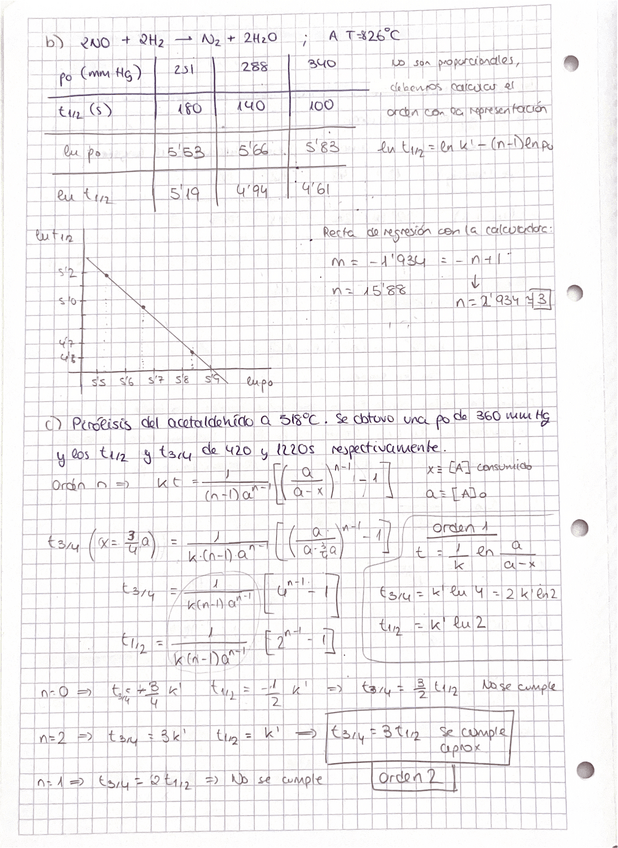 b) 2NO + 2H₂ → N₂ + 2H₂O ; A T=826°C
po (mmHg) 251 288 340
t1/2 (s) 180 140 100
ln po 5'53 5'66 5'83
ln t1/2 5'19 4'94 4'61
No son proporcionales,
debemos calcular el
orden con la representación
ln t1/2 = ln k' - (n-1) ln po
Recta de regresión con la calculadora:
m = -1'934 = -n+1
n = 15'88
↓
n = 2'934 ≃ 3
ln t1/2
5'2
5'0
4'7
4'8
5'5 5'6 5'7 5'8 5'9 ln po
c) Pirólisis del acetaldehído a 518°C. Se obtuvo una po de 360 mmHg
y los t1/2 y t3/4 de 420 y 1220s respectivamente.
Orden n ⇒ kt = 1/((n-1)a^(n-1)) [(a/(a-x))^(n-1) - 1]
x ≡ [A] consumido
a ≡ [A]o
t3/4 (x = 3/4 a) = 1/(k·(n-1)a^(n-1)) [(a/(a-3/4a))^(n-1) - 1]
t3/4 = 1/(k(n-1)a^(n-1)) [4^(n-1) - 1]
t1/2 = 1/(k(n-1)a^(n-1)) · [2^(n-1) - 1]
Orden 1
t = 1/k ln a/(a-x)
t3/4 = k' ln 4 = 2 k' ln 2
t1/2 = k' ln 2
n=0 ⇒ t3/4 = -3/4 k' t1/2 = -1/2 k' ⇒ t3/4 = 3/2 t1/2 No se cumple
n=2 ⇒ t3/4 = 3k' t1/2 = k' ⇒ t3/4 = 3 t1/2 se cumple
aprox
n=1 ⇒ t3/4 = 2 t1/2 ⇒ No se cumple orden 2